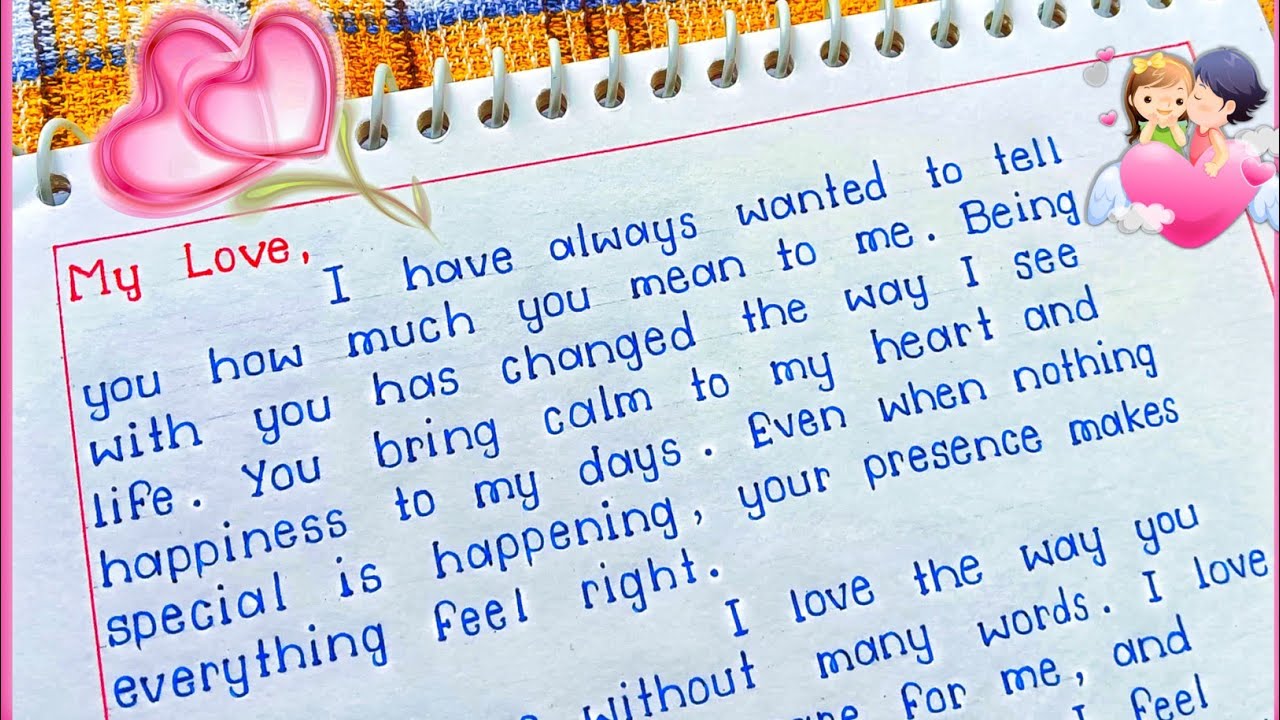 My Love,
I have always wanted to tell
you how much you mean to me. Being
with you has changed the way I see
life. You bring calm to my heart and
happiness to my days. Even when nothing
special is happening, your presence makes
everything feel right.
I love the way you
without many words. I love
for me, and
I feel